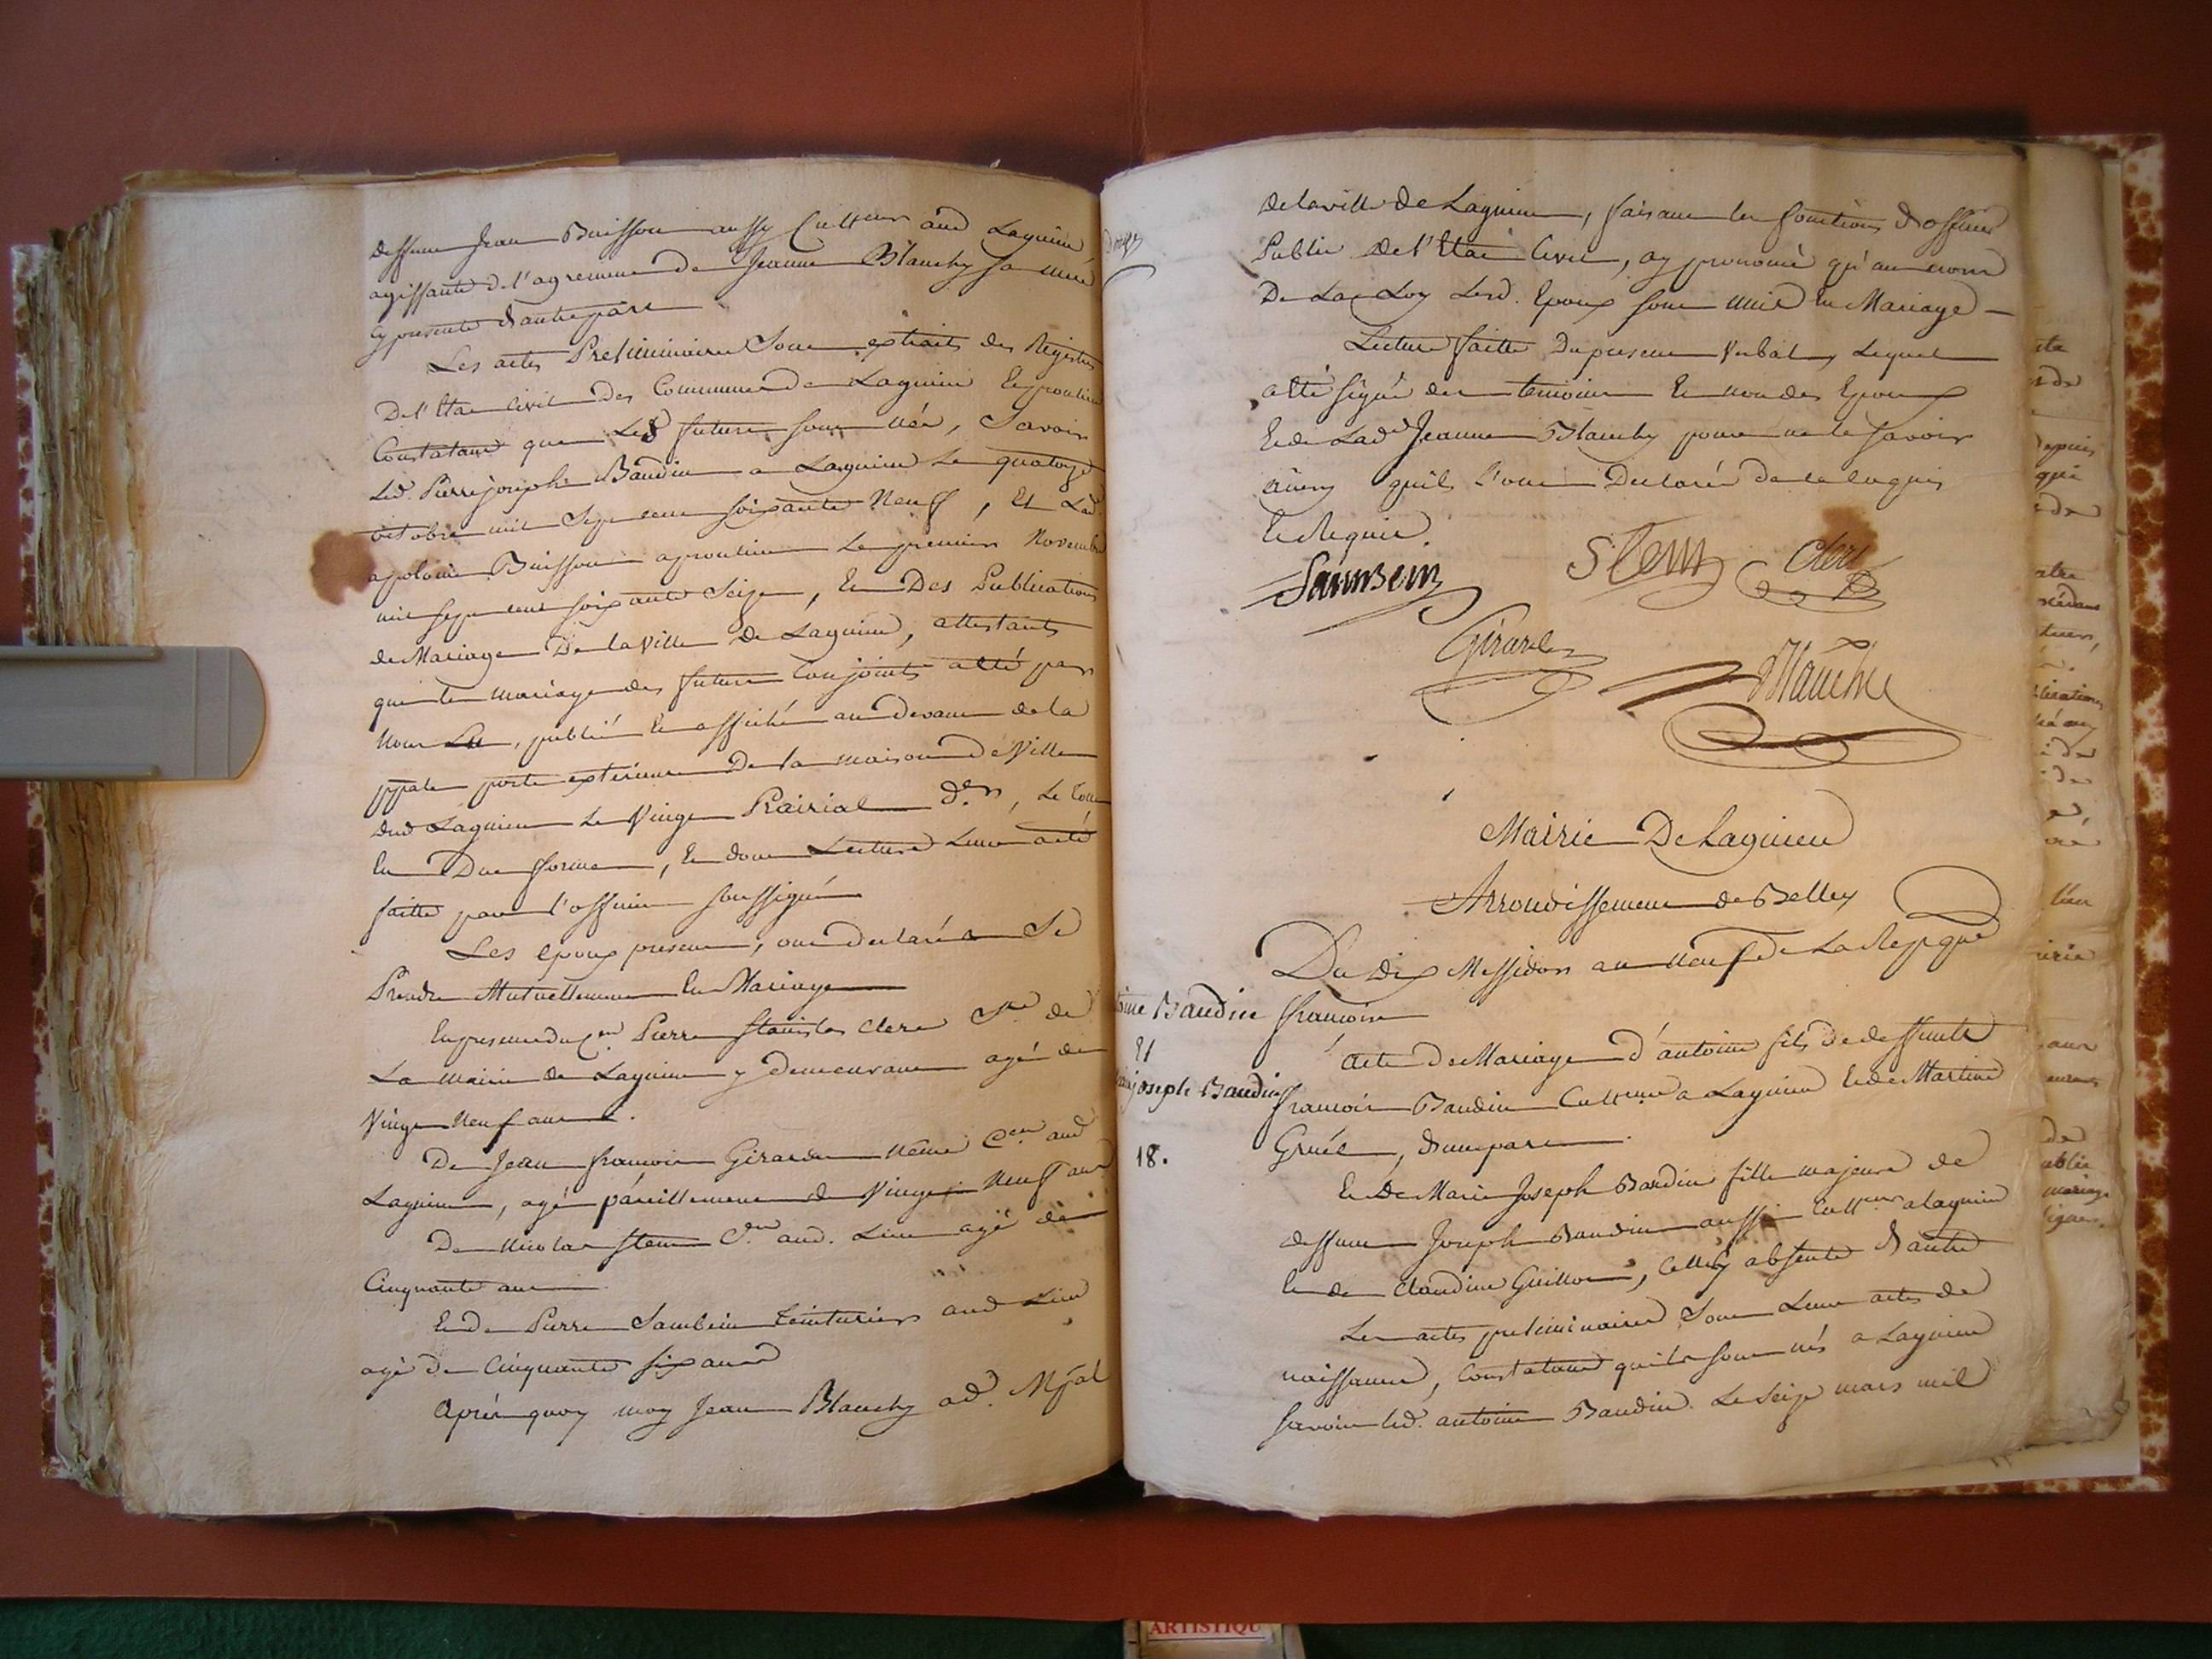 deffunt Jean Buisson aussy Cultteur aud Lagnieu
agissante de l'agrement de Jeanne Blanchy sa mere
cy presente d'autre part
Les actes Preliminaires Sont extraits des Registres
De l'Etat Civil Des Communes de Lagnieu Et
Constatant que Lesd futurs sont nés, Savoir
Led. Pierre joseph Baudin a Lagnieu Le quatorze
octobre mil Sept cent soixante Neuf, Et Lad
apolonie Buisson a Le premier Novembre
mil sept cent soixante Seize, Et Des Publications
de Mariage De la Ville de Lagnieu, attestants
que le mariage des futurs Conjoints a été par
Nous Lu, publié Et affiché au devant de la
ppale porte exterieure De la maison de Ville
dud Lagnieu Le Vingt Prairial d.er, Le tout
En Due forme, Et dont Lecture Leur a été
faitte par l'officier soussigné
Les epoux presents, ont declaré Se
Prendre Mutuellement En Mariage
En presence du Cen Pierre Stanislas Clerc S.re de
La mairie de Lagnieu y demeurant agé de
Vingt Neuf ans.
De Jean françois Girard Cen aud
Lagnieu, agé pareillement de Vingt Neuf ans
De Nicolas Stem aud. Lieu agé de
Cinquante ans
Et de Pierre Sambein teinturier aud Lieu
agé de Cinquante six ans
Après quoy moy Jean Blanchy ad. Mpal
de la ville de Lagnieu, faisant les fonctions d'officier
Public de l'Etat Civil, ay prononcé qu'au nom
De La Loy Lesd. Epoux sont unis En Mariage
Lecture faitte Du present Verbal, Lequel
a été signé des temoins Et non des Epoux
Et de Lad Jeanne Blanchy pour ne le savoir
quils l'ont Declaré de ce enquis
Et Requis.
Sambein Stem Clerc
Girard Blanchy
Mairie De Lagnieu
Arrondissement de Belley
Du Dix Messidor an neuf de La Repque
françoise
Baudin
Et
joseph Baudin
18.
Acte De Mariage d'antoine fils de deffunt
françois Baudin Cultteur a Lagnieu Et de Martine
Gruél, d'une part.
Et De Marie Joseph Baudin fille majeure de
deffunt Joseph Baudin aussi Cultteur a Lagnieu
Et de Claudine Guillon, Celle cy absente d'autre
Les actes preliminaires Sont Leurs actes de
naissance, Constatant qu'ils sont nés a Lagnieu
Savoir led. antoine Baudin Le Seize mars mil
ARTISTIQU